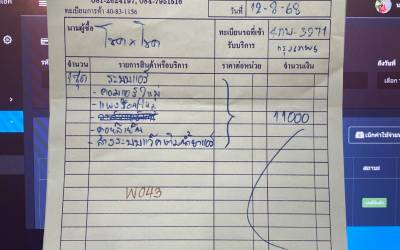 081-2624197, 084-7951516
ทะเบียนการค้า 40-83-1156
วันที่ 12-8-68
นามผู้ซื้อ โชค x โชค
ทะเบียนรถที่เข้ารับบริการ 4ภพ-3271 กรุงเทพฯ
จำนวน รายการสินค้าหรือบริการ ราคาต่อหน่วย จำนวนเงิน
1ชุด ระบบแอร์
- คอมแอร์ใหม่
- แผงร้อนใหม่
11000
- คอยล์เย็น
- ล้างระบบแว็คเติมน้ำยาแอร์
W043
ถึงวันที่
สถานะ